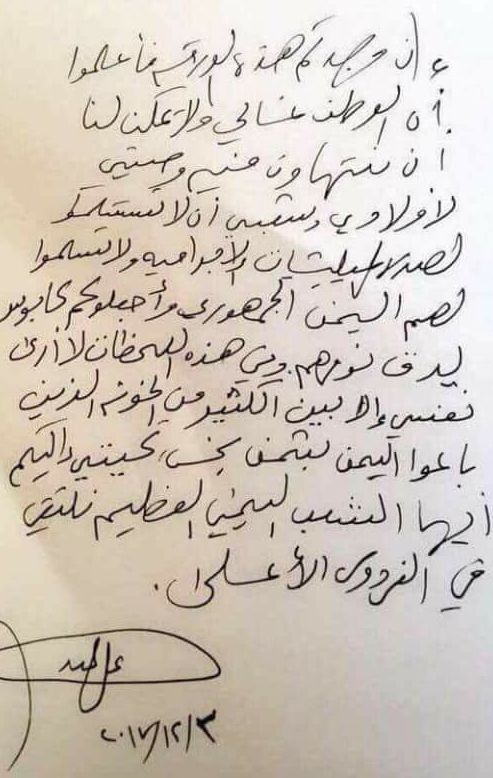 إن وجدتم هذه الورقة فأعلموا
أن الوطن غالي ولا يمكن لنا
أن نتهاون فيه وصيتي
لأولادي وشعبي أن لا تستسلمو
لهذه المليشيات الإجراميه ولا تسلموا
لهم اليمن الجمهوري وأجعلوكم كابوس
يدق نومهم وفي هذه اللحظات لا أرى
نفسي إلا بين الكثير من الخونه الذين
باعوا اليمن بثمن بخس تحيتي إليكم
أيها الشعب اليمني العظيم نلتقي
في الفردوس الأعلى.
٢٠١٧/١٢/٣